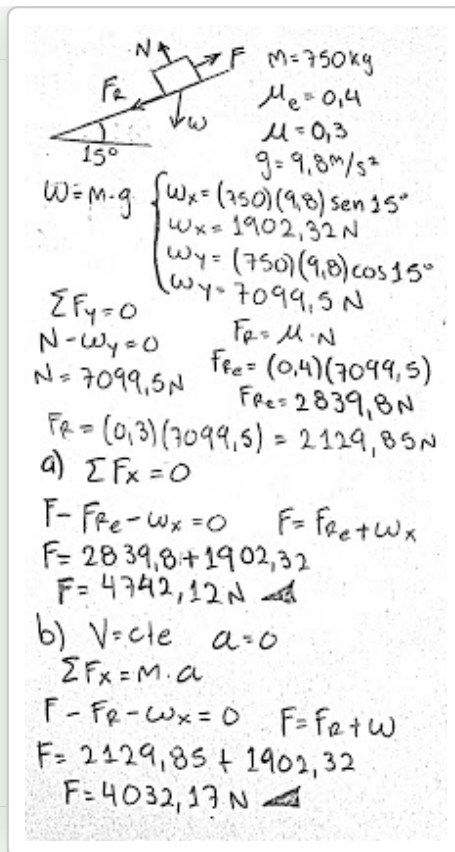 N F m=750kg
FR μe=0,4
w μ=0,3
15° g=9,8m/s²
W=m.g { Wx=(750)(9,8) sen 15°
Wx=1902,32N
Wy=(750)(9,8)cos15°
Wy=7099,5N
ΣFy=0
N-Wy=0 FR=μ.N
N=7099,5N FRe=(0,4)(7099,5)
FRe=2839,8N
FR=(0,3)(7099,5)=2129,85N
a) ΣFx=0
F-FRe-Wx=0 F=FRe+Wx
F=2839,8+1902,32
F=4742,12N
b) V=cte a=0
ΣFx=m.a
F-FR-Wx=0 F=FR+W
F=2129,85+1902,32
F=4032,17N